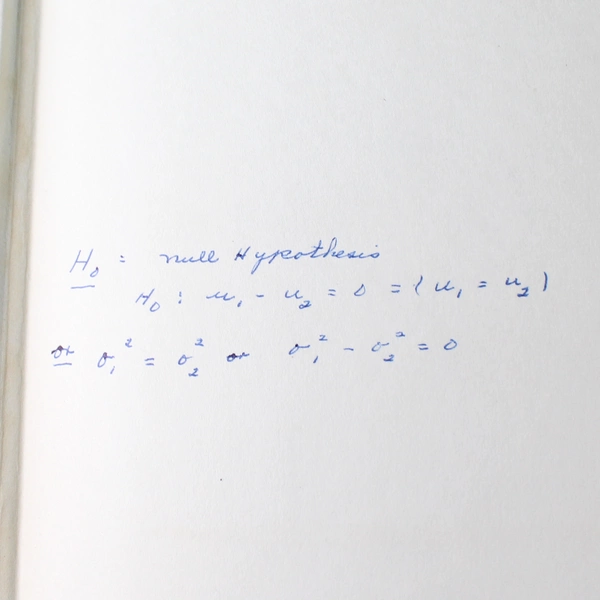 H₀ : null Hypothesis
H₀ : u₁ - u₂ = 0 = (u₁ = u₂)
or σ₁² = σ₂² or σ₁² - σ₂² = 0